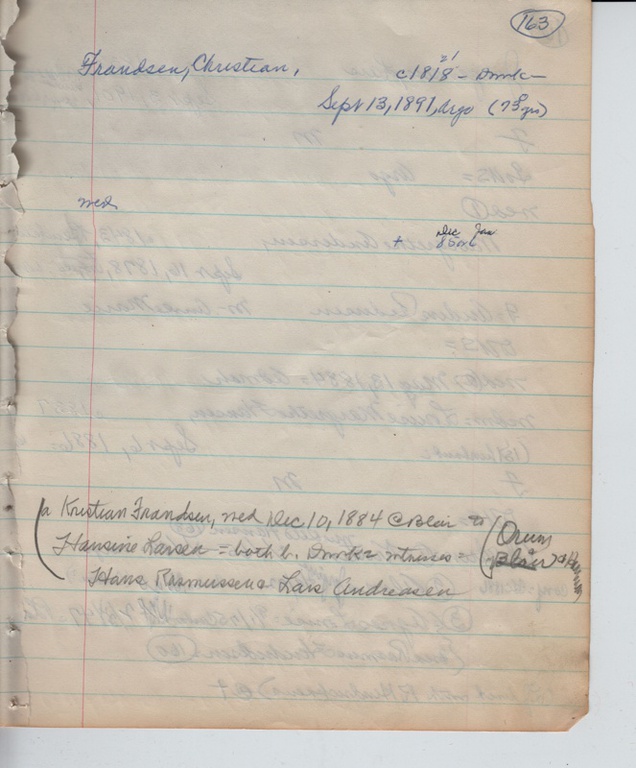 163
Frandsen, Christian, c1818 - Dmrk -
21
Sept 13, 1891, Argo (73 yrs)
wed
Dec Jan
+ 85 or 6
(a Kristian Frandsen, wed Dec 10, 1884 @ Blair to
Hansine Larsen = both b. Dmrk = witness = (Orum
Blair
Hans Rasmussen & Lars Andreasen